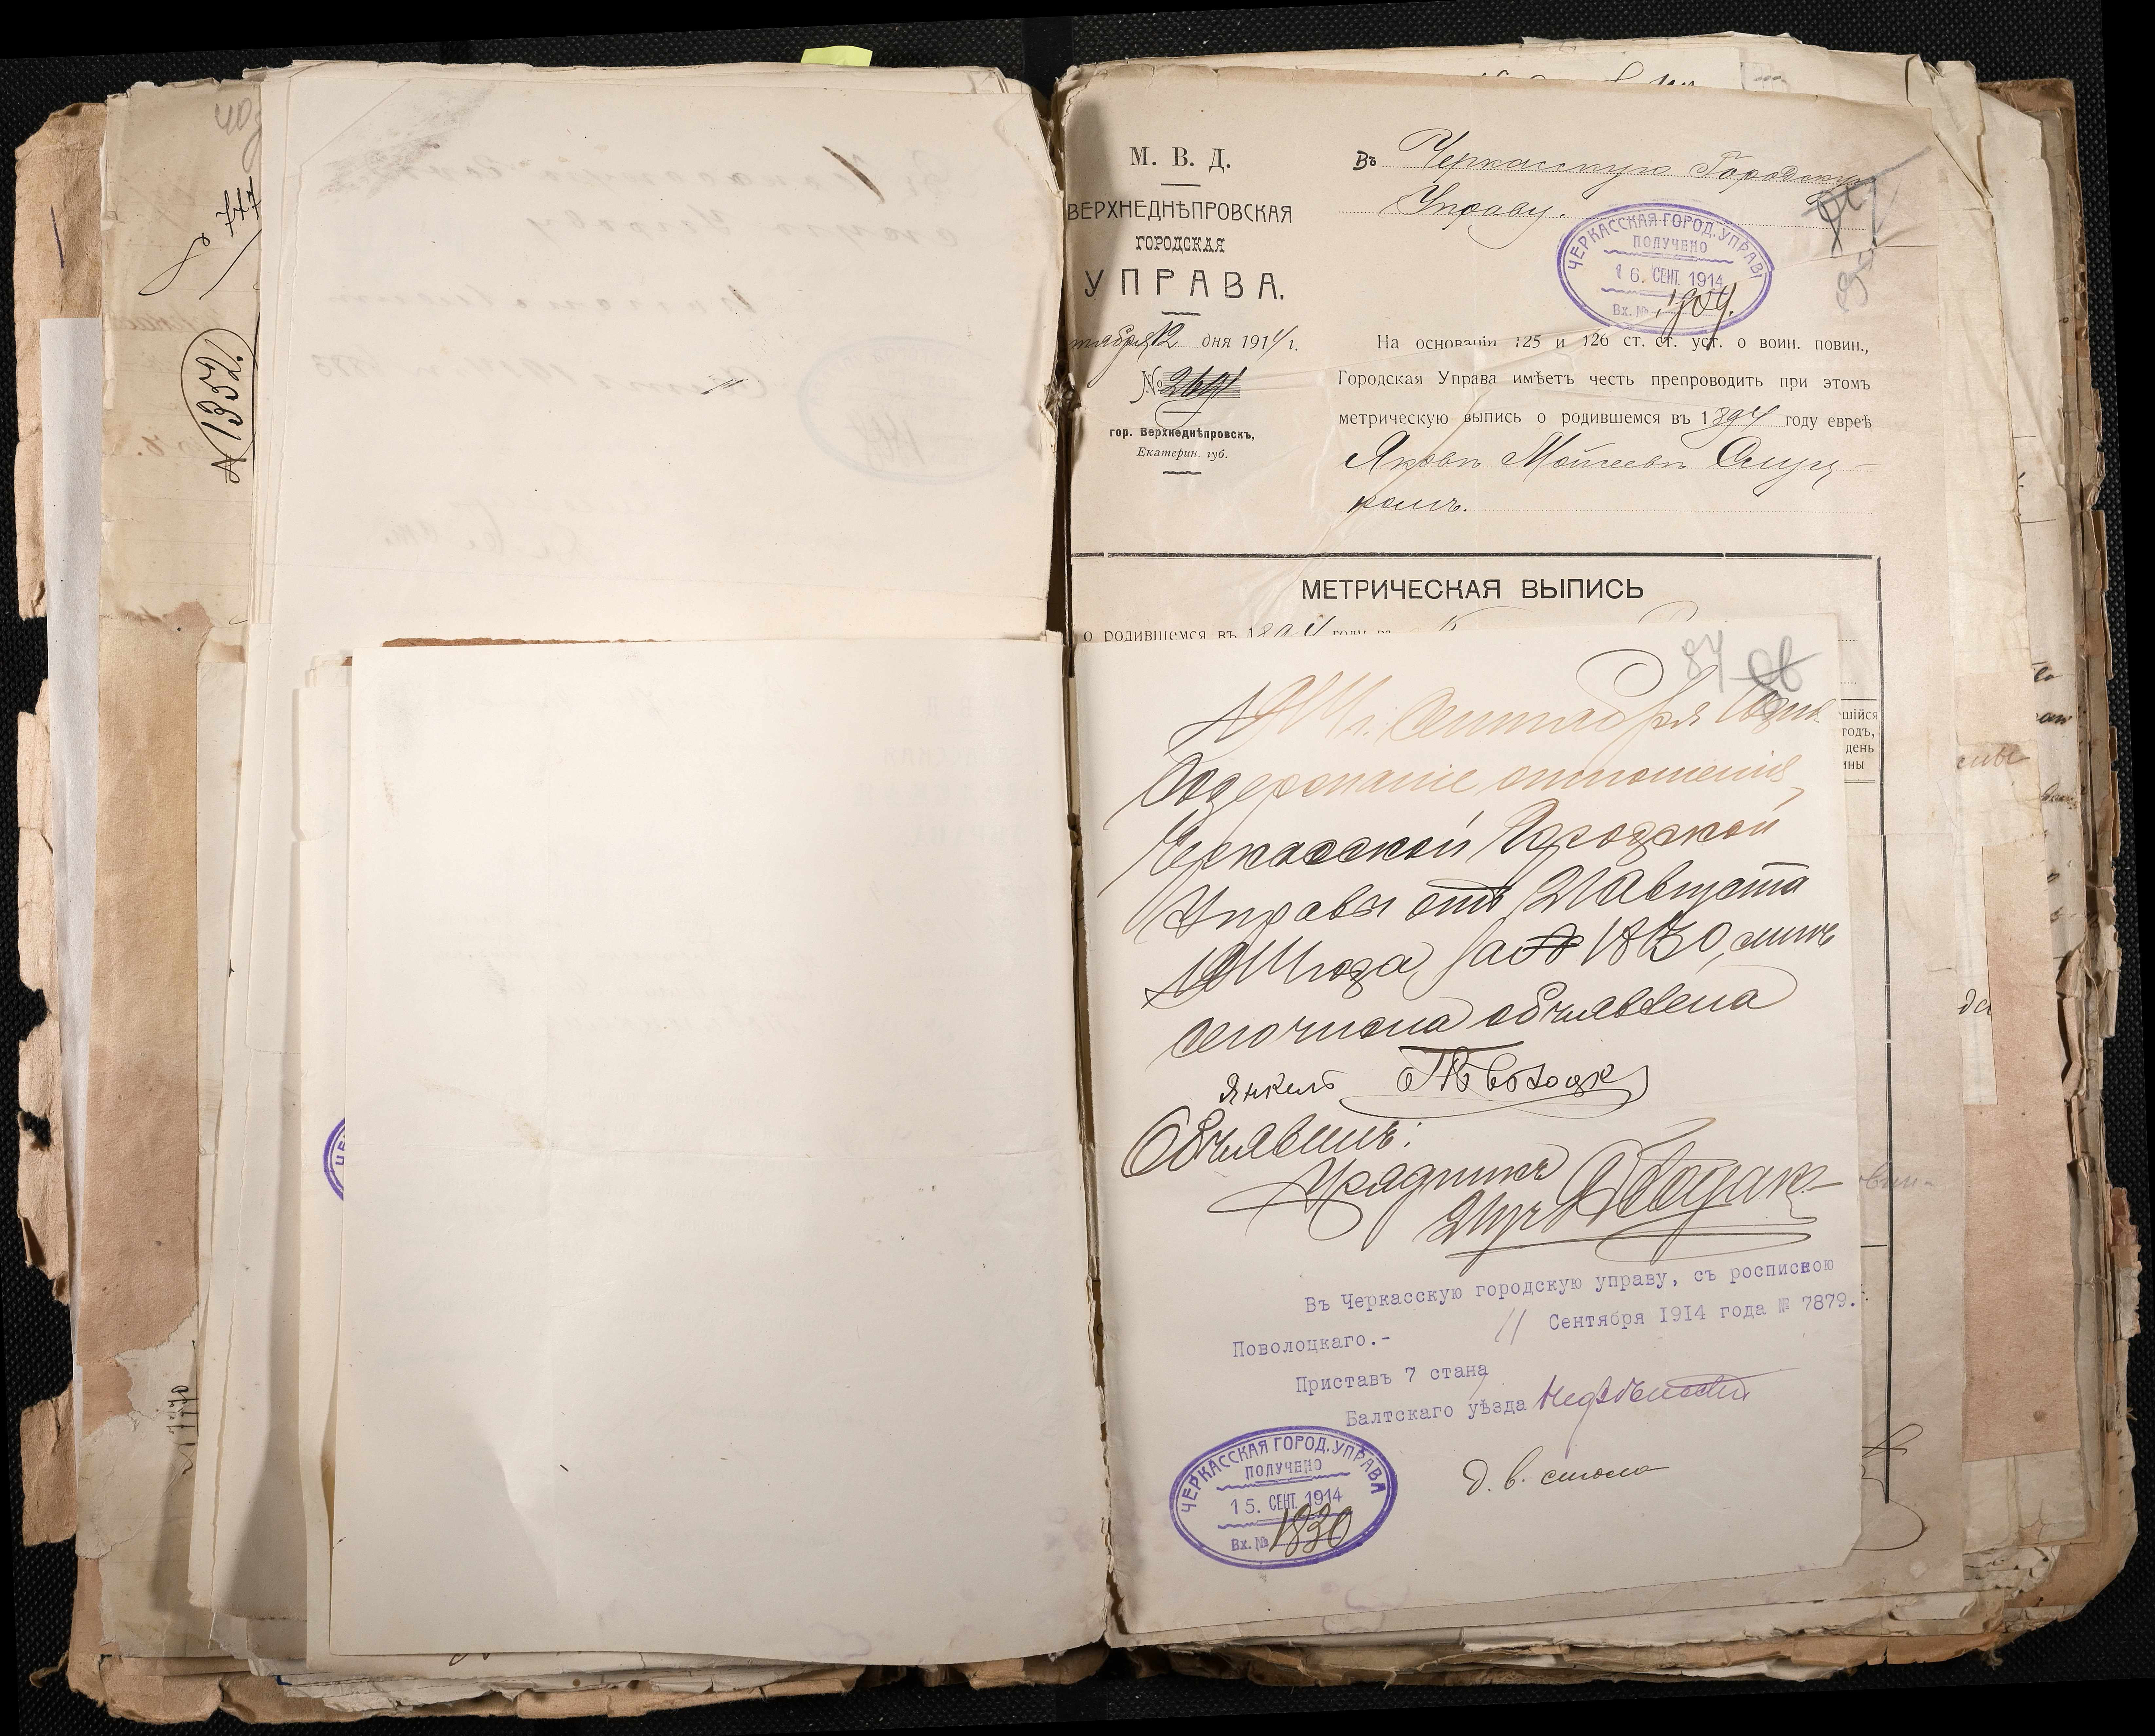 777
№ 1352.
М. В. Д.
ВЕРХНЕДНѢПРОВСКАЯ
ГОРОДСКАЯ
УПРАВА.
тября 12 дня 1914 г.
№ 2691
гор. Верхнеднѣпровскъ,
Екатерин. губ.
Въ Черкасскую Городскую
Управу.
ЧЕРКАССКАЯ ГОРОД. УПРАВ
ПОЛУЧЕНО
16. СЕНТ. 1914
Вх. № 1904.
На основаніи 125 и 126 ст. ст. уст. о воин. повин.,
Городская Управа имѣетъ честь препроводить при этомъ
метрическую выпись о родившемся въ 1894 году евреѣ
Яковъ Мойсеевъ Слуц-
комъ.
МЕТРИЧЕСКАЯ ВЫПИСЬ
о родившемся въ 1894 году въ
шійся
годъ,
день
ины
87
1914 г. Сентября дня
Содержаніе отношенія
Черкасской Городской
Управы отъ 21 Августа
1914 года за № 1830, мнѣ
объявлена
Янкель Поволоцкій
Объявилъ:
Урядникъ
Въ Черкасскую городскую управу, съ роспискою
Поволоцкаго.- 11 Сентября 1914 года № 7879.
Приставъ 7 стана
Балтскаго уѣзда
ЧЕРКАССКАЯ ГОРОД. УПРАВА
ПОЛУЧЕНО
15. СЕНТ. 1914
Вх. № 1830
д. в. стола